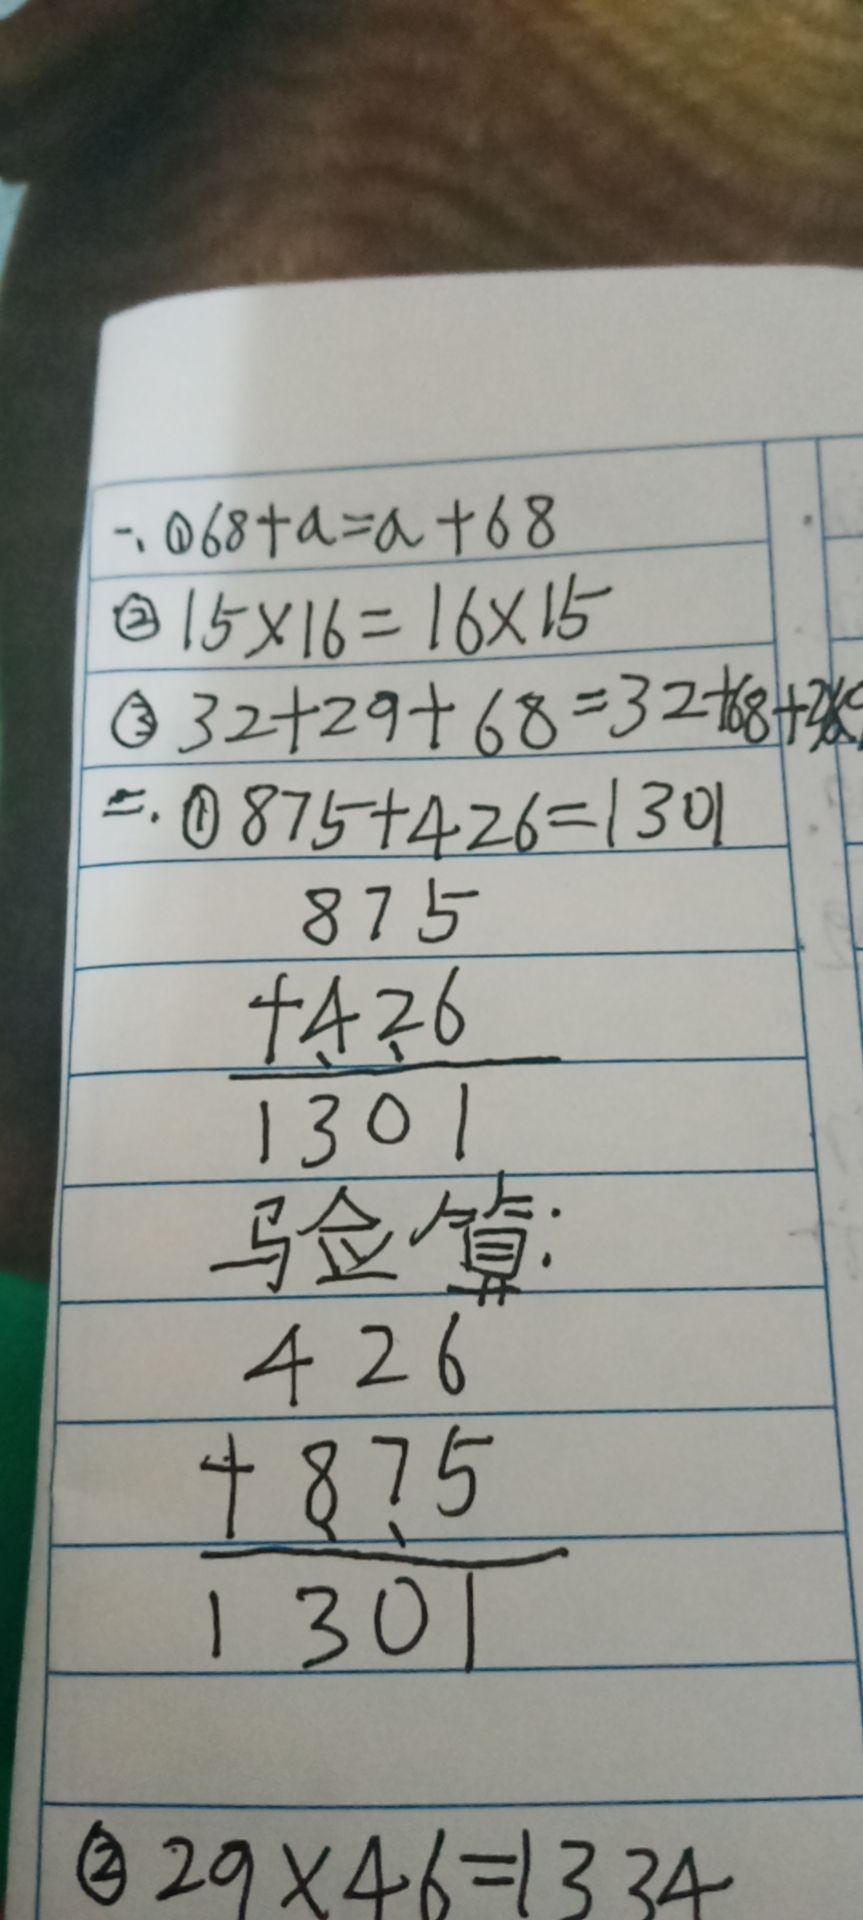 一、①68+a=a+68
②15×16=16×15
③32+29+68=32+68+29
二.①875+426=1301
875
+426
1301
马佥算:
426
+875
1301
②29×46=1334